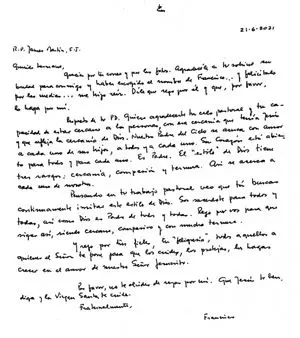 21-6-2021
R.P. James Martin, S.J.
Querido hermano,
Gracias por tu correo y por las fotos. Agradecele a tu sobrino su
bondad para conmigo y haber escogido el nombre de Francisco... y felicitalo
por las medias... me hizo reir. Dile que rezo por él y que, por favor,
lo haga por mi.
Respecto de tu P.D. Quiero agradecerte tu celo pastoral y tu ca-
pacidad de estar cercano a las personas, con esa cercanía que tenía Jesús
y que refleja la cercanía de Dios. Nuestro Padre del Cielo se acerca con amor
a cada uno de sus hijos, a todos y a cada uno. Su Corazón está abier-
to para todos y para cada uno. Es Padre. El "estilo" de Dios tiene
tres rasgos: cercanía, compasión y ternura. Así se acerca a
cada uno de nosotros.
Pensando en tu trabajo pastoral veo que tú buscas
continuamente imitar este estilo de Dios. Sos sacerdote para todos y
todas, así como Dios es Padre de todos y todas. Rezo por vos para que
sigas así, siendo cercano, compasivo y con mucha ternura.
Y rezo por tus fieles, tu "feligresía", todos aquellos a
quienes el Señor te puso para que los cuides, los protejas, los hagas
crecer en el amor de nuestro Señor Jesucristo.
Por favor, no te olvides de rezar por mí. Que Jesús te ben-
diga y la Virgen Santa te cuide.
Fraternalmente,
Francisco